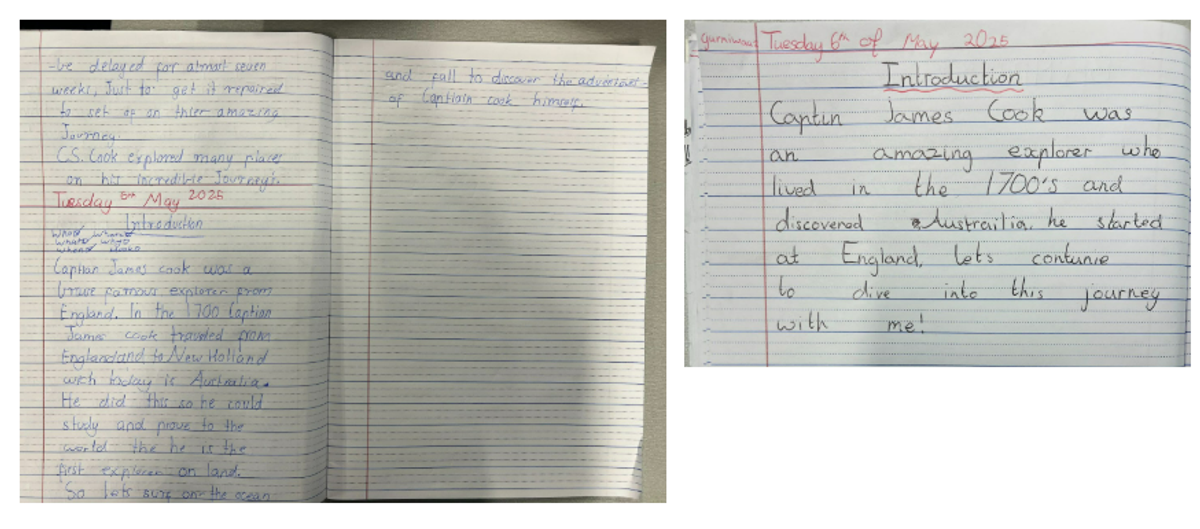 -be delayed for almost seven
weeks, Just to get it repaired
to set of on thier amazing
Journey.
C.S. Cook explored many places
on his incredible Journey's.
Tuesday 6th May 2025
Introduction
Who Where
What Why
When
Captian James cook was a
brave famous explorer from
England. In the 1700 Captian
James cook traveled from
England and to New Holland
wich today is Australia.
He did this so he could
study and prove to the
world the he is the
first explorer on land.
So lets surf on the ocean
and fall to discover the
of Captiain cook himself.
Tuesday 6th of May 2025
Introduction
Captin James Cook was
an amazing explorer who
lived in the 1700's and
discovered Austrailia. he started
at England, lets contunie
to dive into this journey
with me!